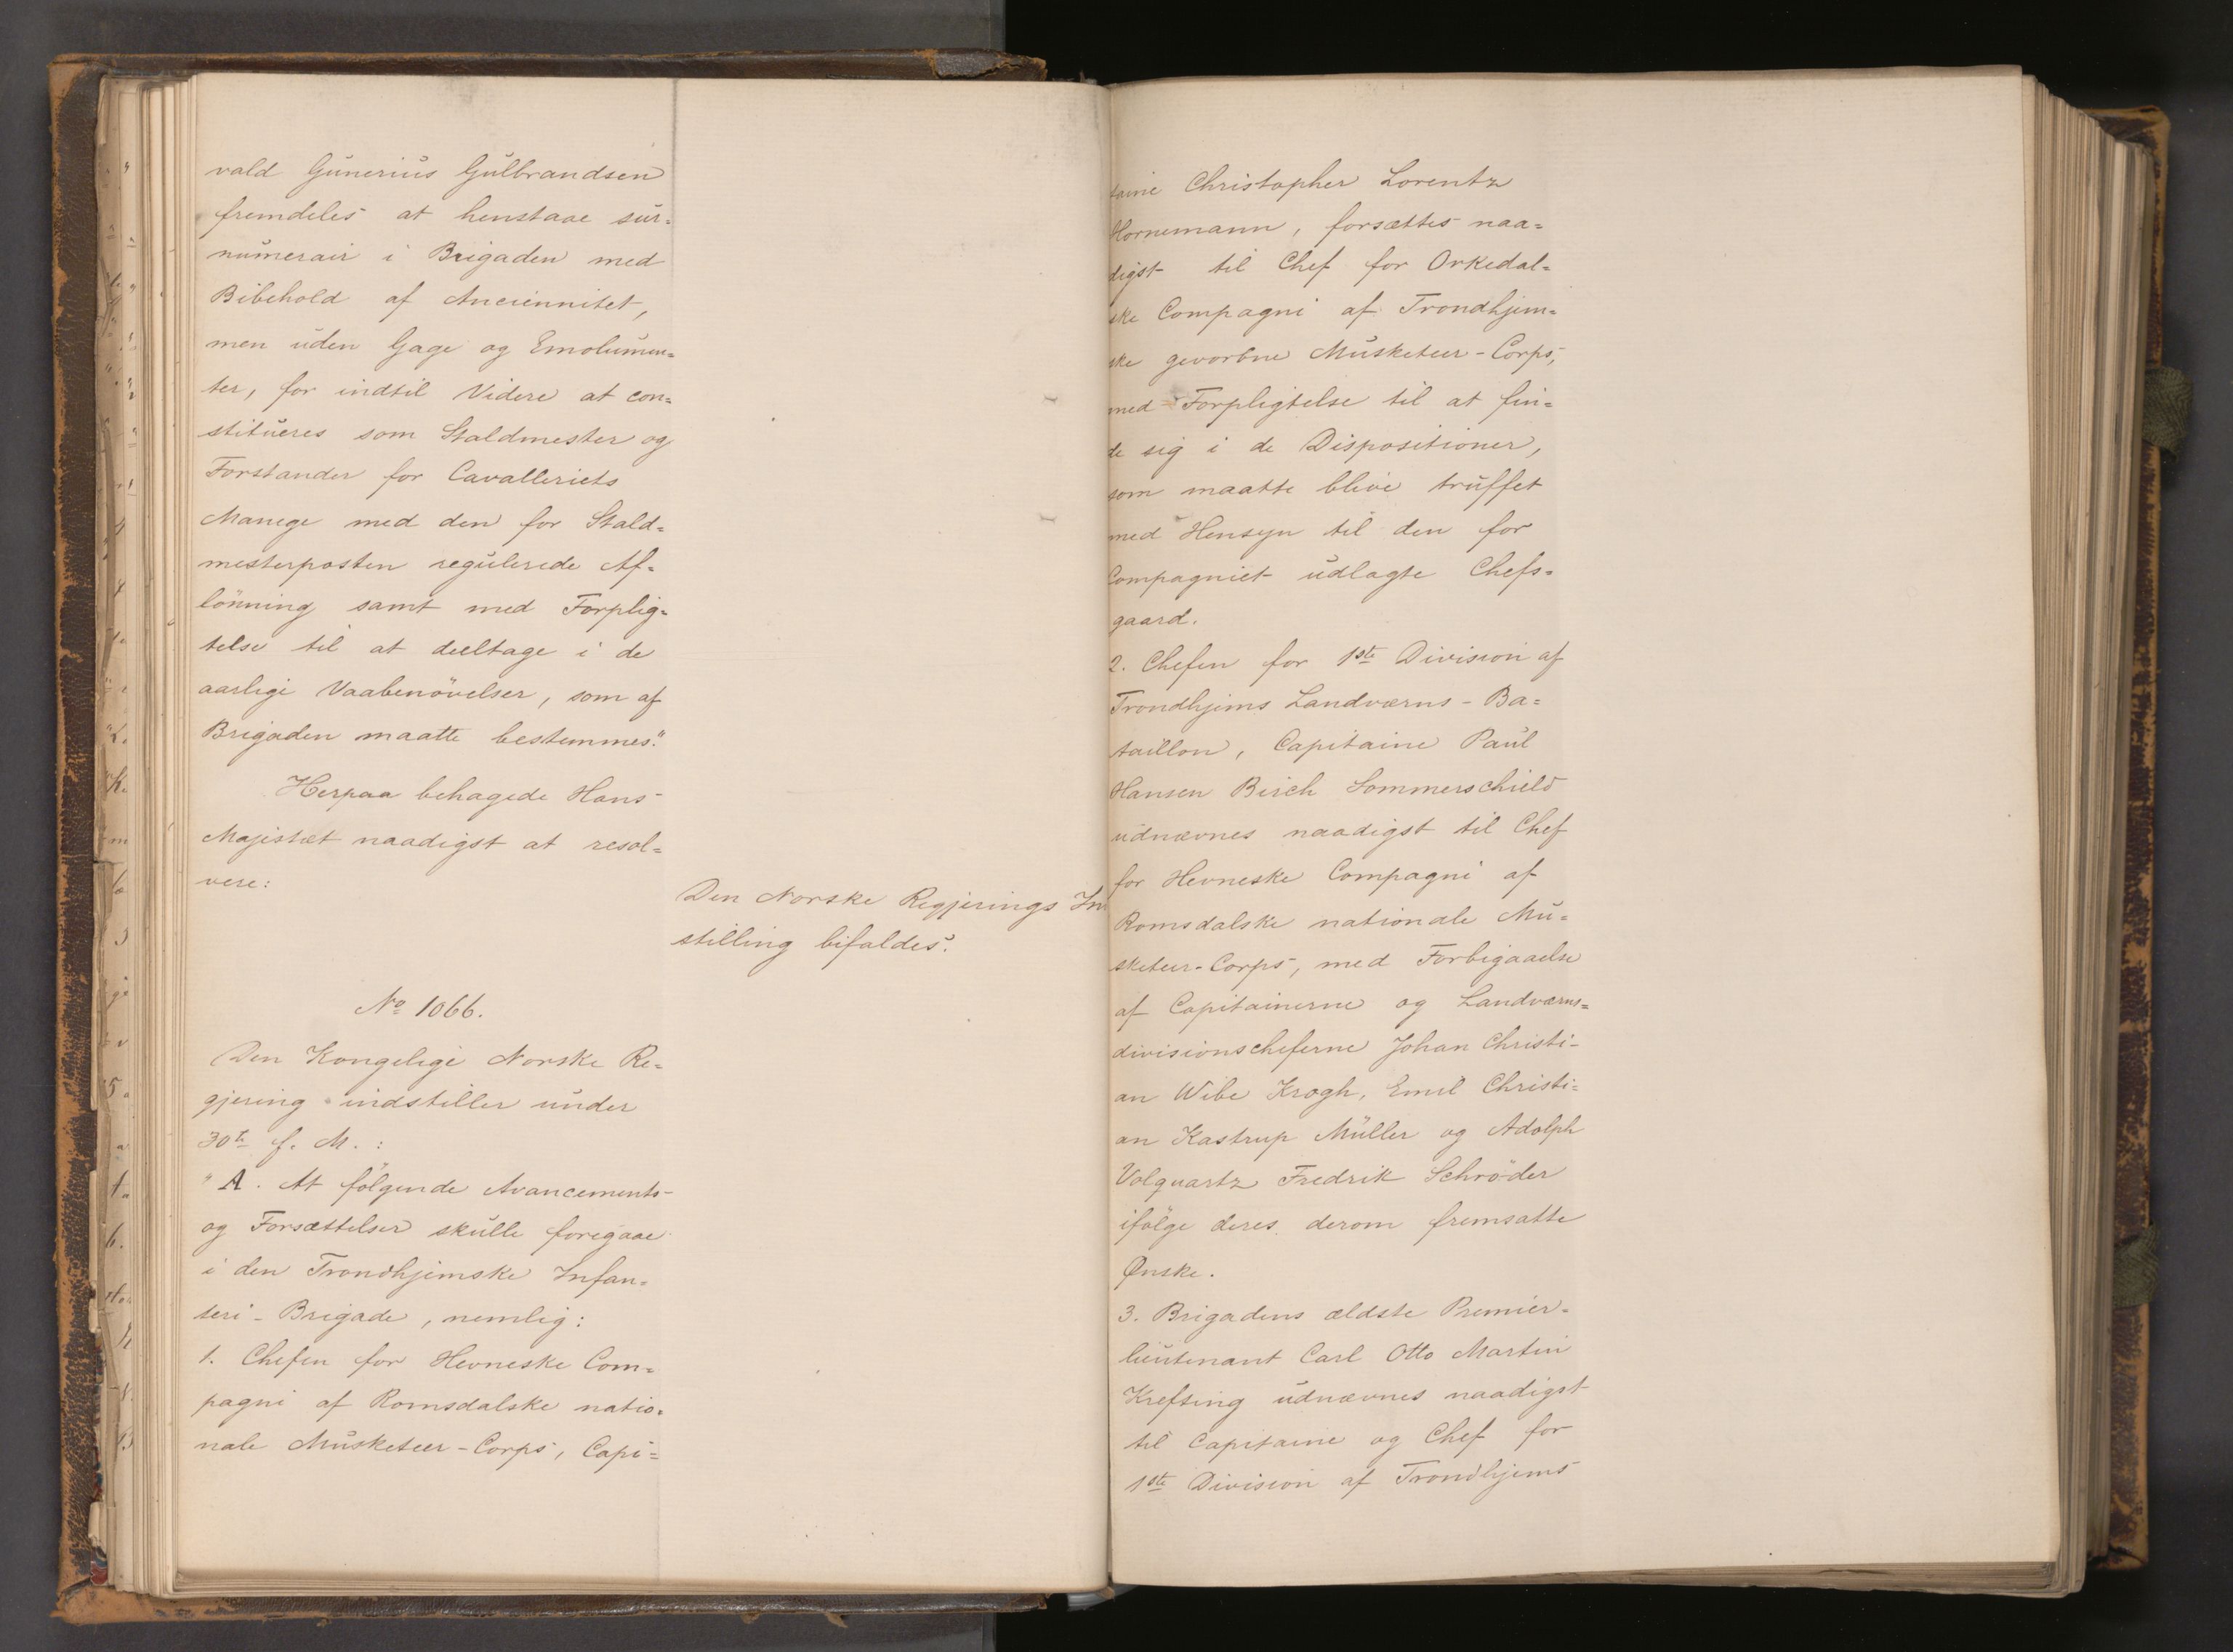 vald Gunerius Gulbrandsen
fremdeles at henstaae sur=
numerair i Brigaden med
Bibehold af Anciennitet,
men uden Gage og Emolumen=
ter, for indtil Videre at con=
stitueres som Staldmester og
Forstander for Cavalleriets
Manege med den for Stald=
mesterposten regulerede Af=
lönning samt med Forplig=
telse til at deeltage i de
aarlige Vaabenövelser, som af
Brigaden maatte bestemmes."
Herpaa behagede Hans
Majestæt naadigst at resol=
vere:
Den Norske Regjerings In
stilling bifaldes.
No 1066.
Den Kongelige Norske Re=
gjering indstiller under
30te f. M.:
"A. At fölgende Avancements-
og Forsættelser skulle foregaae
i den Trondhjemske Infan=
teri-Brigade, nemlig:
1. Chefen for Hevneske Com=
pagni af Romsdalske natio=
nale Musketeer-Corps, Capi=
taine Christopher Lorentz
Hornemann, forsættes naa=
digst til Chef for Orkedal=
ske Compagni af Trondhjem=
ske gevorbne Musketeer-Corps,
med Forpligtelse til at fin=
de sig i de Dispositioner,
som maatte blive truffet
med Hensyn til den for
Compagniet udlagte Chefs=
gaard.
2. Chefen for 1ste Division af
Trondhjems Landværns-Ba=
taillon, Capitaine Paul
Hansen Birch Sommerschield
udnævnes naadigst til Chef
for Hevneske Compagni af
Romsdalske nationale Mu=
sketeer-Corps, med Forbigaaelse
af Capitainerne og Landværns=
divisionscheferne Johan Christi-
an Wibe Krogh, Emil Christi=
an Kastrup Müller og Adolph
Volquartz Fredrik Schröder
ifölge deres derom fremsatte
Ønske.
3. Brigadens ældste Premier-
lieutenant Carl Otto Martin
Krefting udnævnes naadigst
til Capitaine og Chef for
1ste Division af Trondhjems